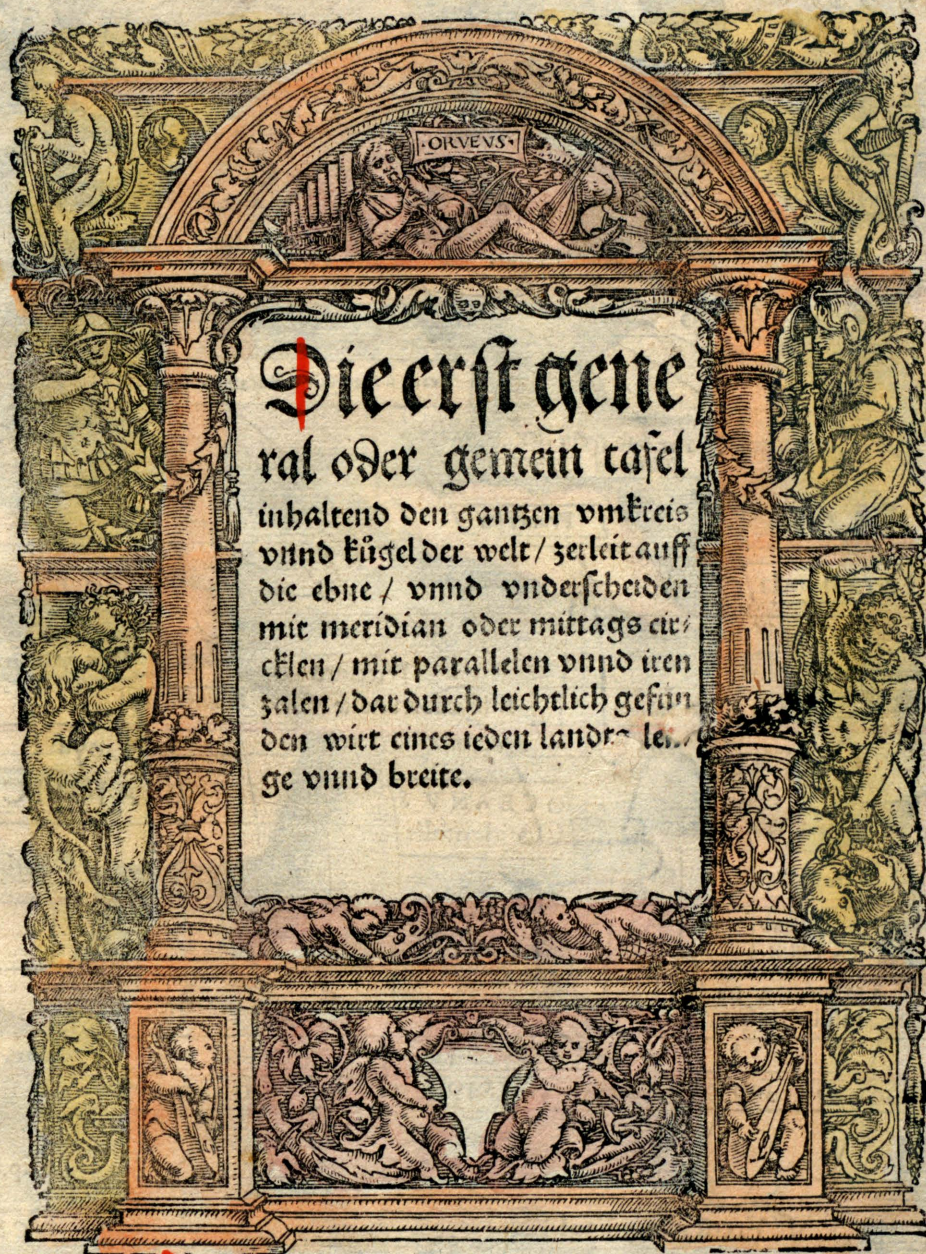 ·ORVEVS·
Die erſt gene
ral oder gemein tafel
inhaltend den gantzen vmkreis
vnnd kůgel der welt / zerleit auff
die ebne / vnnd vnderſcheiden
mit meridian oder mittags cir⸗
cklen / mit parallelen vnnd iren
zalen / dar durch leichtlich gefun
den wirt eines ieden landts
ge vnnd breite.